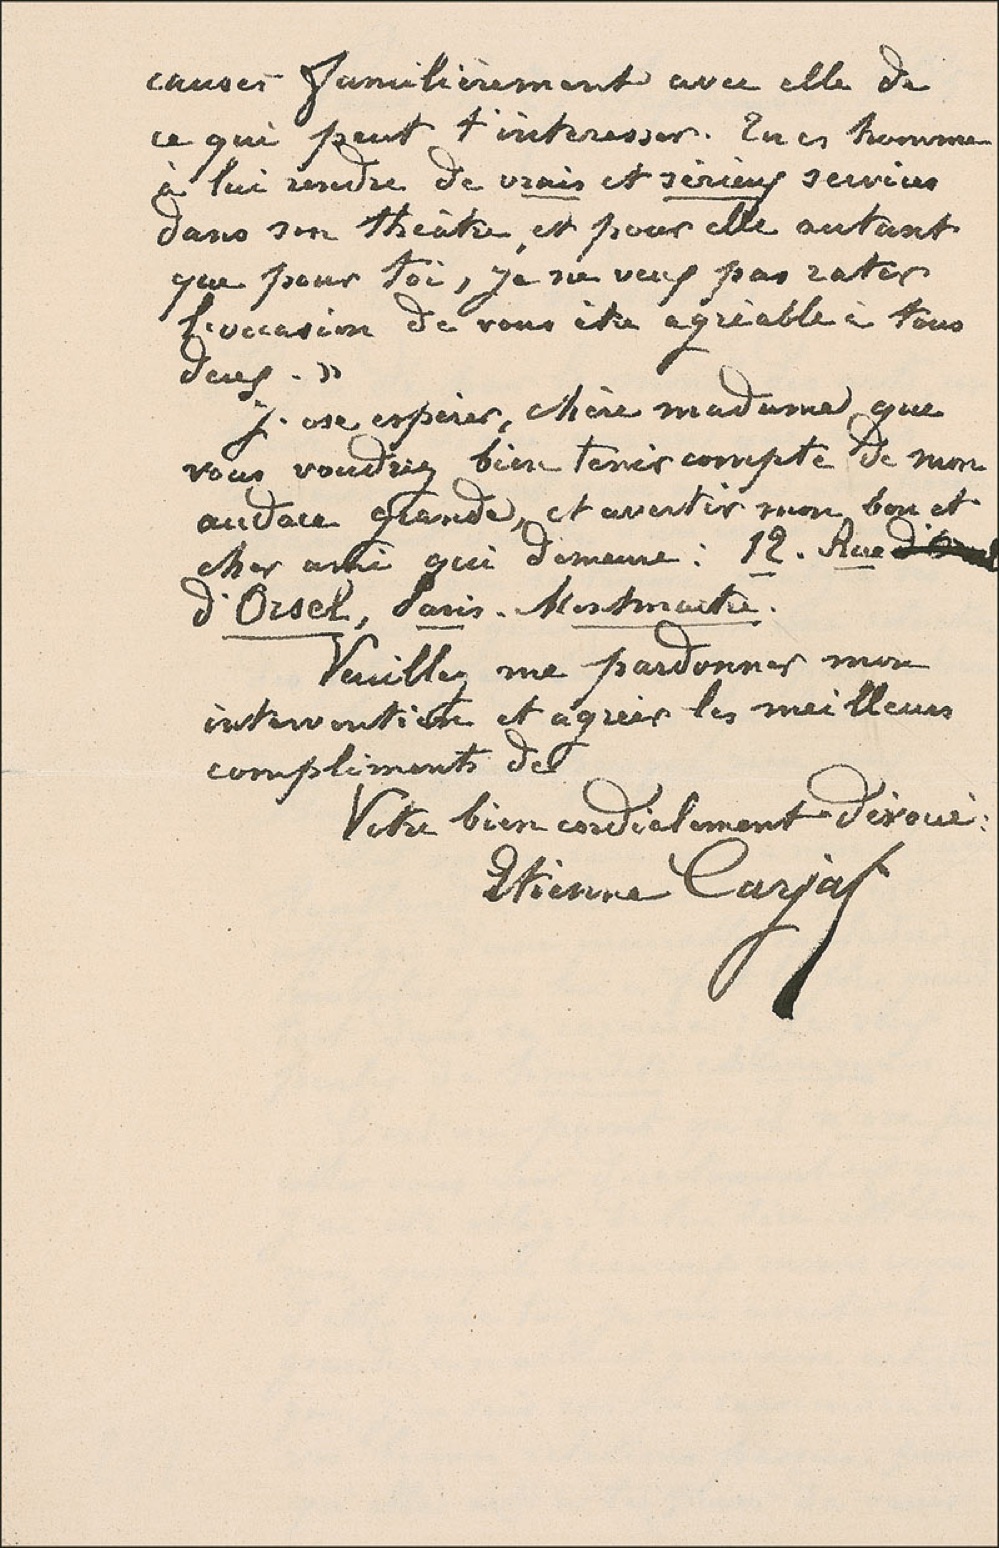 causer familièrement avec elle de
ce qui peut t'intéresser. Tu es homme
à lui rendre de vrais et sérieux services
dans son théâtre, et pour elle autant
que pour toi, je ne veux pas rater
l'occasion de vous être agréable à tous
deux. »
J'ose espérer, chère madame, que
vous voudrez bien tenir compte de mon
audace grande, et avertir mon bon et
cher ami qui demeure : 12. Rue
d'Orsel, Paris. Montmartre.
Veuillez me pardonner mon
intervention et agréer les meilleurs
compliments de
Votre bien cordialement dévoué :
Etienne Carjat